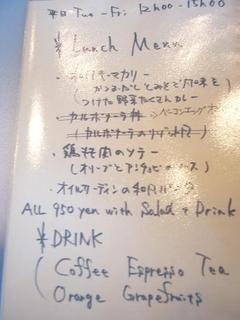 平日 Tue - Fri 12h00 - 15h00
¥ Lunch Menu
キーマカリー
(かつおだしとみそで風味を
つけた野菜たくさんカレー
カルボナーラ丼 ベーコンエッグ
(カルボナーラのリゾット風)
・鶏モモ肉のソテー
(オリーブとアンチョビのソース)
・オイルサーディンの和風パスタ
ALL 950 yen with Salad + Drink
¥ DRINK
( Coffee Espresso Tea
Orange Grapefruits